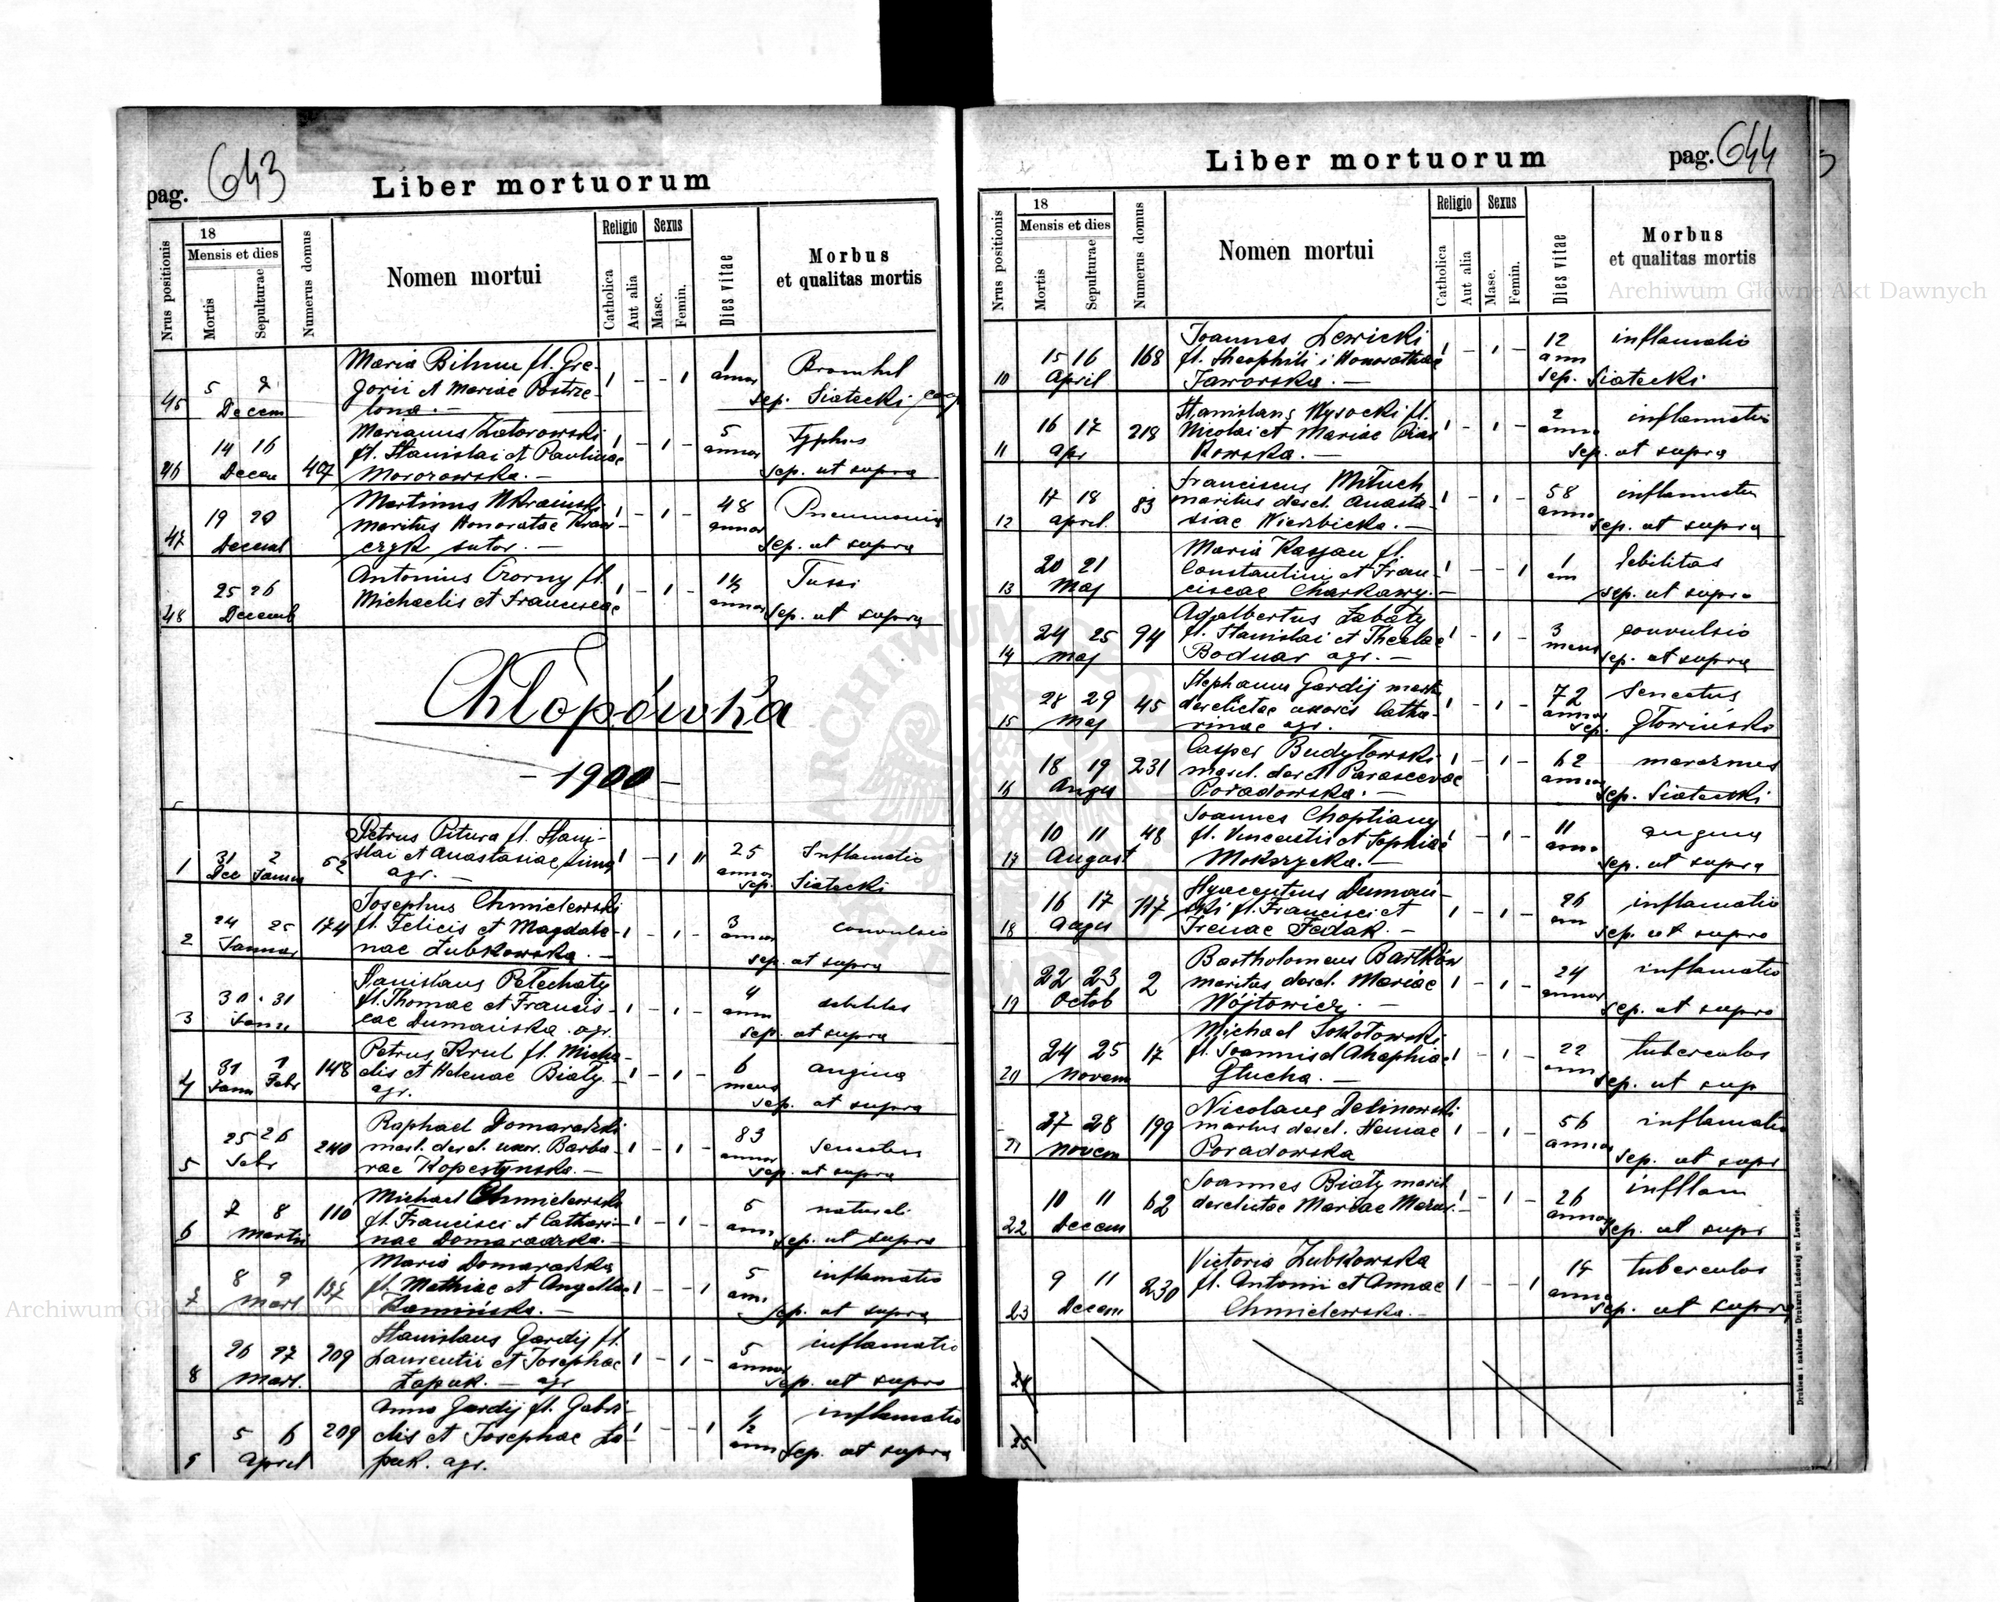 pag. 643
Liber mortuorum
Nrus positionis
18
Mensis et dies
Mortis
Sepulturae
Numerus domus
Nomen mortui
Religio
Catholica
Aut alia
Sexus
Masc.
Femin.
Dies vitae
Morbus
et qualitas mortis
45 5 7 Decem
Maria fl. Gre-
gorii et Mariae Postrze-
lona. —
1 annor
sep. Siatecki
46 14 16 Decem 407
Marianus Zatorowski
fl. Stanislai et Paulinae
Mororowska. —
5 annor Typhus
sep. ut supra
47 19 20 Decemb
Martinus Ukrainski
maritus Honoratae Kraw-
czyk sutor. —
48 annor Pneumonia
sep. ut supra
48 25 26 Decemb
Antonius Czorny fl.
Michaelis et Franciscae
annor Tussi
sep. ut supra
Chłopówka
- 1900 -
1 31 Dec 2 Januar 52
Petrus Pitura fl. Stani-
slai et Anastasiae
agr. —
25 annor Inflamatio
sep. Siatecki
2 24 25 Januar 174
Josephus Chmielewski
fl. Felicis et Magdale-
nae Zubkowska. —
3 annor convulsio
sep. ut supra
3 30 31 Janu
Stanislaus Petechaty
fl. Thomae et Francis-
cae Dumańska. agr.
4 ann debilitas
sep. ut supra
4 31 Janu 1 Febr 148
Petrus Krul fl. Micha-
elis et Helenae Biały. —
agr.
6 mens angina
sep. ut supra
5 25 26 Febr 240
Raphael Domaradzki
marit. derel. uxor. Barba-
rae Kopestynska. —
83 annor senectus
sep. ut supra
6 7 8 Martii 110
Michael Chmielewski
fl. Francisci et Cathari-
nae Domaradzka. —
5 ann natural.
sep. ut supra
7 8 9 Mart 137
Maria Domaradzka
fl. Mathiae et Angellae
Kamińska. —
5 ann. inflamatio
sep. ut supra
8 26 27 Mart. 209
Stanislaus Gardij fl.
Laurentii et Josephae
Łapuk. — agr
5 annor inflamatio
sep. ut supra
9 5 6 April 209
Anna Gardij fl. Gabri-
elis et Josephae Ła-
puk. agr.
1/2 ann inflamatio
sep. ut supra
pag. 644
Liber mortuorum
Nrus positionis
18
Mensis et dies
Mortis
Sepulturae
Numerus domus
Nomen mortui
Religio
Catholica
Aut alia
Sexus
Masc.
Femin.
Dies vitae
Morbus
et qualitas mortis
10 15 16 April 168
Joannes Lewicki
fl. Theophili i Honorathae
Jaworska. —
12 ann inflamatio
sep. Siatecki
11 16 17 Apr 218
Stanislaus Wysocki fl.
Nicolai et Mariae Pias
kowska. —
2 anno inflammatio
sep. ut supra
12 17 18 April. 83
Franciscus Mituch
maritus derel. Anasta-
siae Wierzbicka. —
58 anno inflammatio
sep. ut supra
13 20 21 Maj
Maria Kasjan fl.
Constantini et Fran-
ciscae Charkawy. —
1 ann debilitas
sep. ut supra
14 24 25 Maj 94
Adalbertus Zabaty
fl. Stanislai et Theclae
Bodnar agr. —
3 mens convulsio
sep. ut supra
15 28 29 Maj 45
Stephanus Gardij marit
derelictae uxoris Catha-
rinae agr.
72 annor senectus
sep. Głowiński
16 18 19 Augus 231
Casper Budytowski
marit. derel Parascevae
Poradowska. —
62 annor marazmus
sep. Siatecki
17 10 11 August 48
Joannes Choptiany
fl. Vincentii et Sophiae
Mokrzycka. —
11 anno angina
sep. ut supra
18 16 17 Augus 147
Hyacentus Dumań-
ski fl. Francisci et
Irenae Fedak. —
26 ann inflamatio
sep. ut supra
19 22 23 Octob 2
Bartholomeus Bartków
maritus derel. Mariae
Wójtowicz. —
24 annor inflamatio
sep. ut supra
20 24 25 Novem 17
Michael Sokołowski
fl. Joannis et Ahaphiae
Głucha. —
22 ann tuberculos
sep. ut sup
21 27 28 Novem 199
Nicolaus Delinowski
maritus derel. Heniae
Poradowska
56 annor inflamatio
sep. ut supr
22 10 11 Decem 62
Joannes Biały marit
derelictae Mariae Mazur. —
26 annor infflam
sep. ut supr
23 9 11 Decem 230
Victoria Zubkowska
fl. Antonii et Annae
Chmielewska. —
anno tuberculos
sep. ut supra
24
25
Drukiem i nakładem Drukarni Ludowej we Lwowie.
Archiwum Główne Akt Dawnych
Archiwum Główne Akt Dawnych